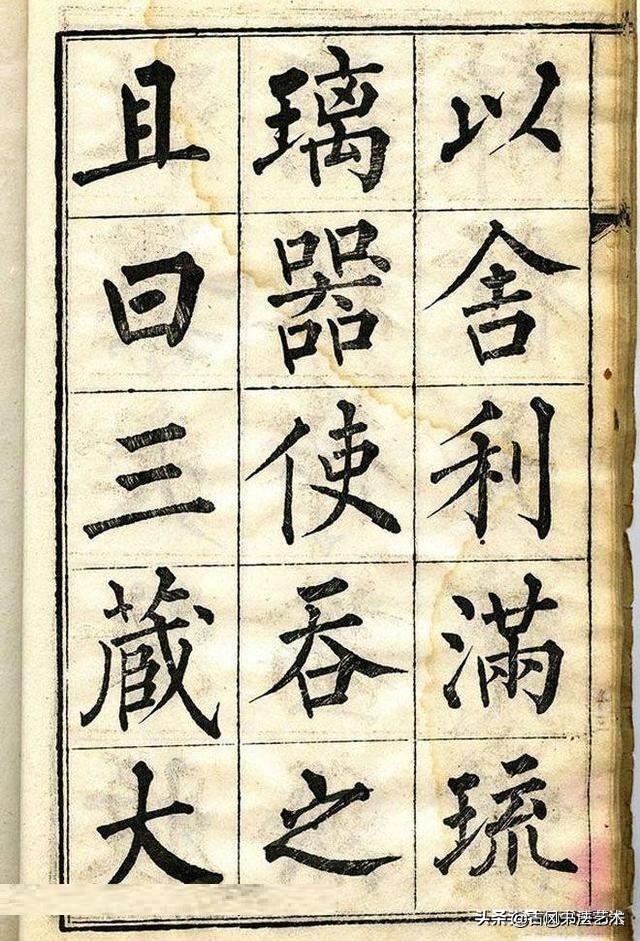 以舍利滿琉
璃器使吞之
且曰三藏大
头条@古风书法艺术